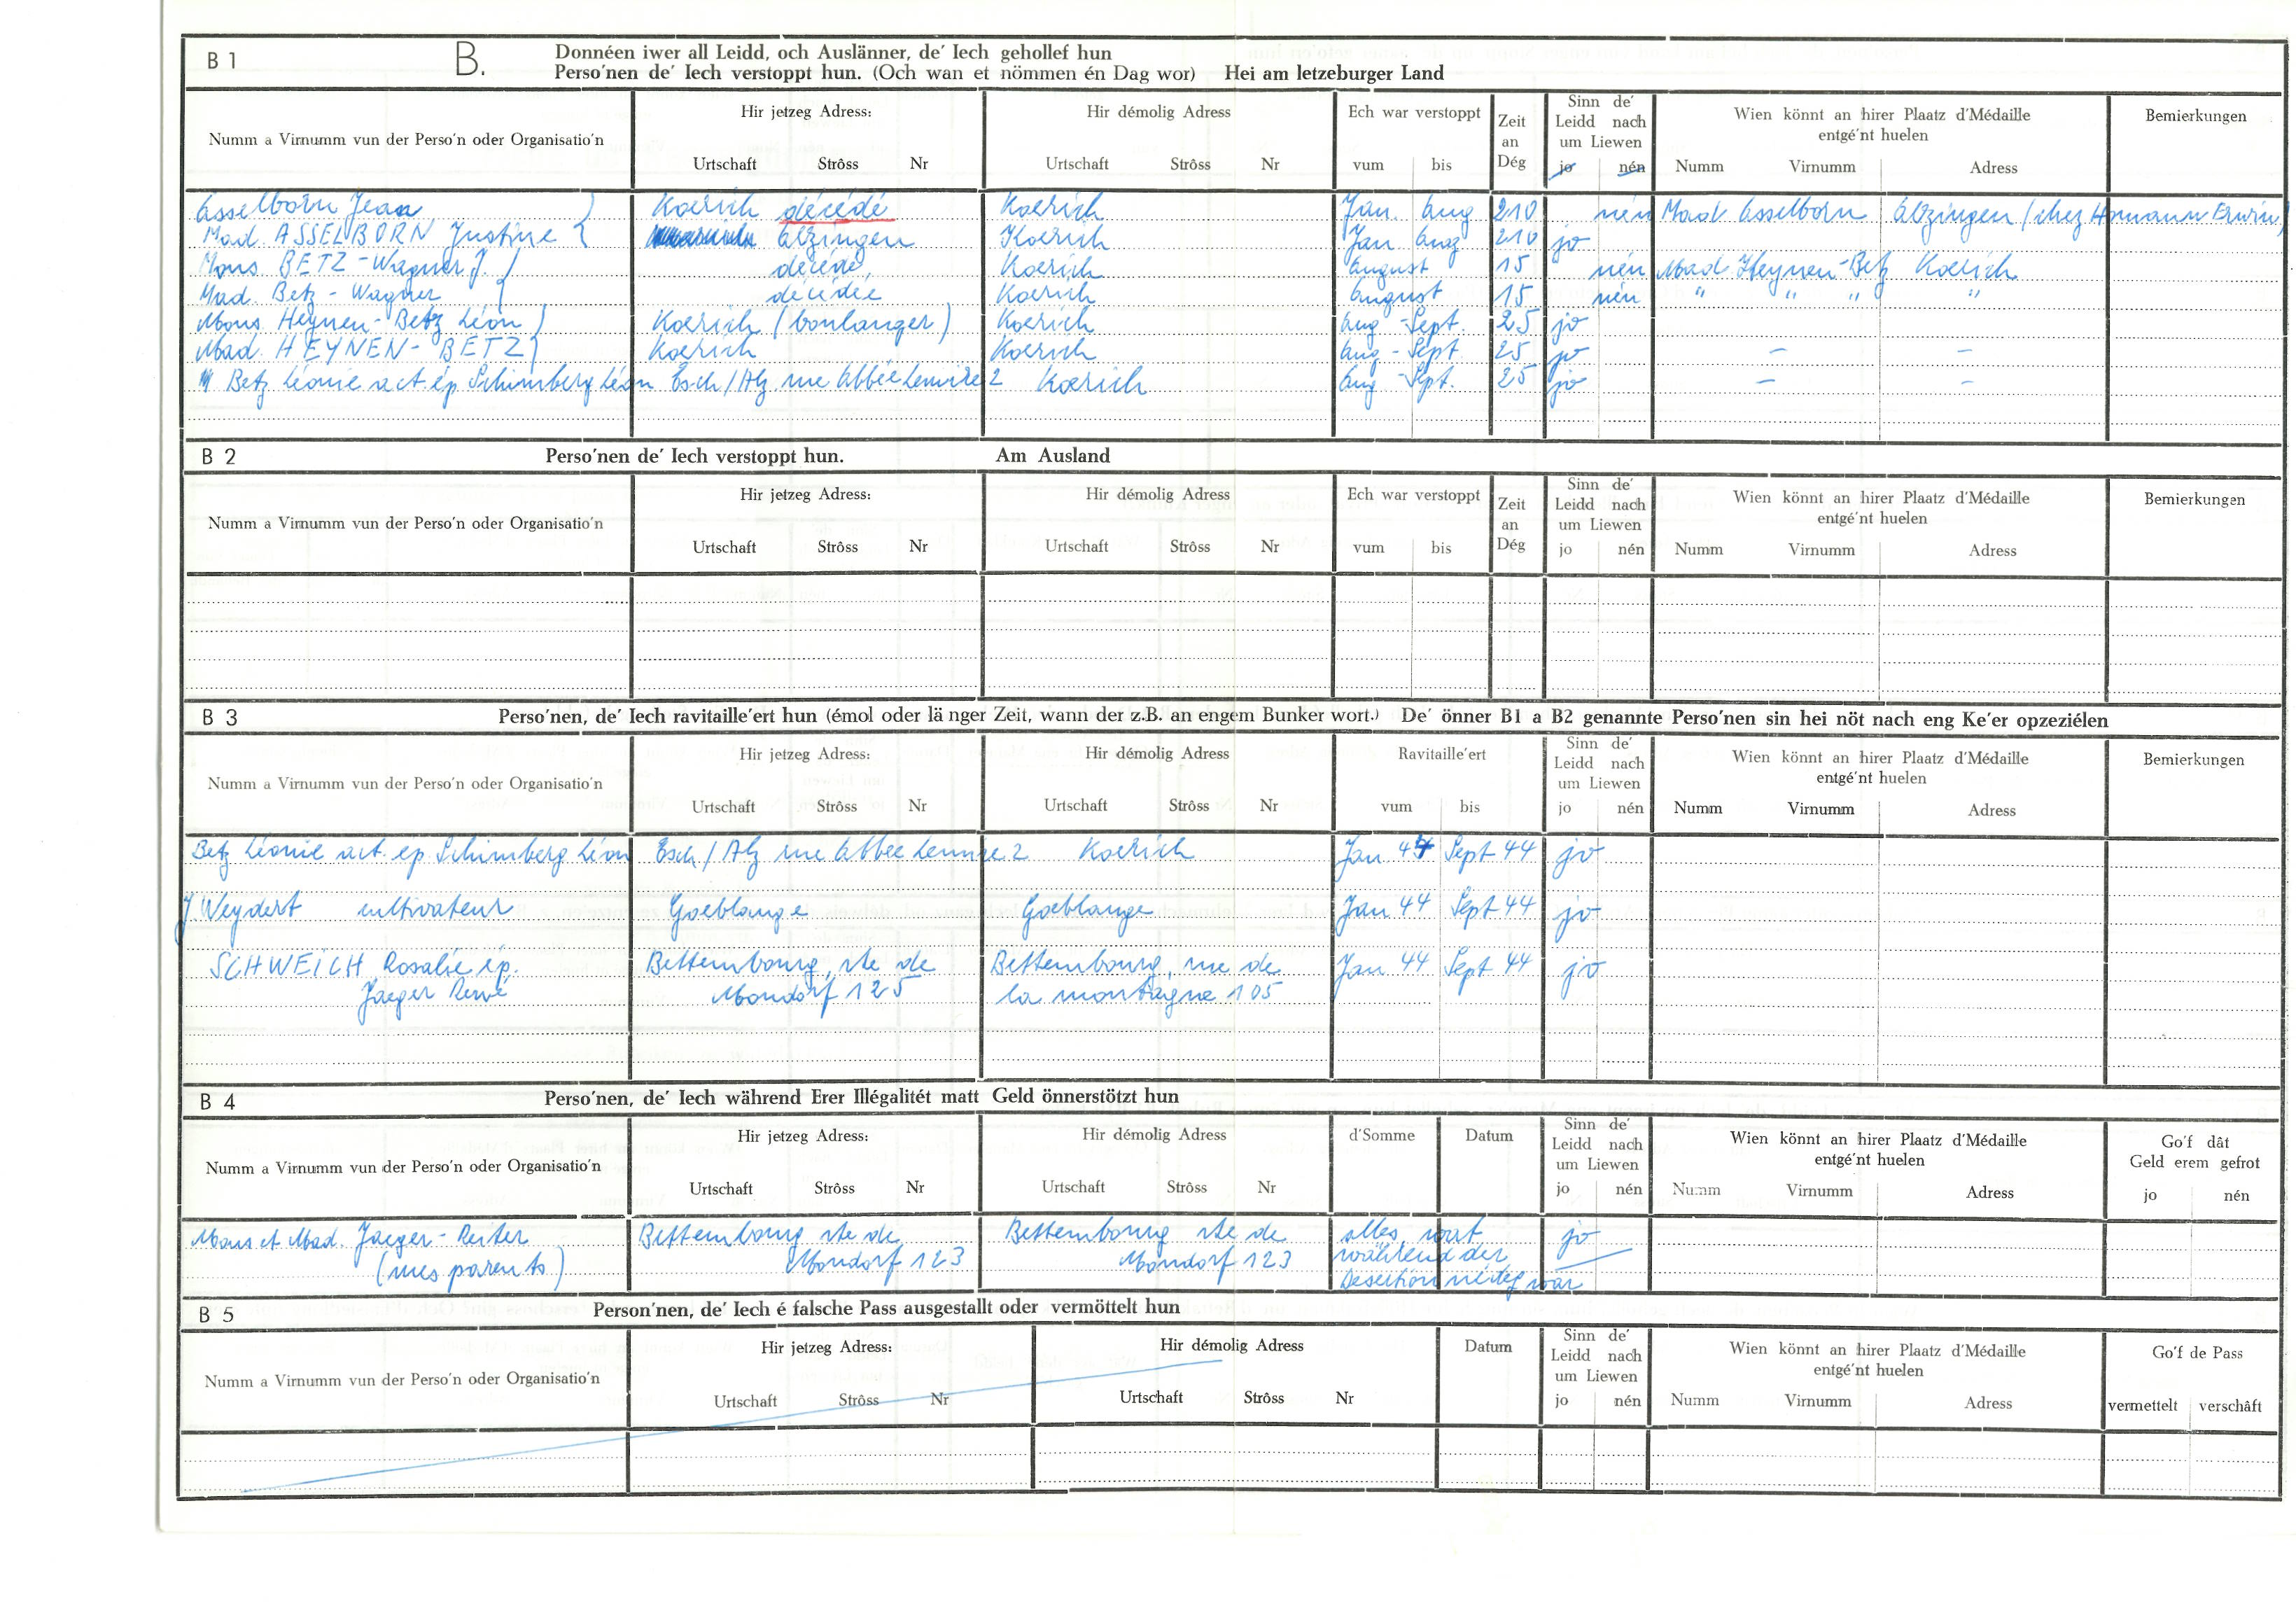 B 1 B. Donnéen iwer all Leidd, och Auslänner, de' Iech gehollef hun
Perso'nen de' Iech verstoppt hun. (Och wan et nömmen én Dag wor) Hei am letzeburger Land
Numm a Virnumm vun der Perso'n oder Organisatio'n Hir jetzeg Adress: Hir démolig Adress Ech war verstoppt Zeit an Dég Sinn de' Leidd nach um Liewen Wien könnt an hirer Plaatz d'Médaille entgé'nt huelen Bemierkungen
Urtschaft Strôss Nr Urtschaft Strôss Nr vum bis jo nén Numm Virnumm Adress
Asselborn Jean Koerich décédé Koerich Jan. Aug 210 nén Mad. Asselborn Alzingen (chez Erwin)
Mad. ASSELBORN Justine Alzingen Koerich Jan Aug 210 jo
Mons. BETZ-Wagner J. décédé, Koerich August 15 nén Mad. Heynen-Betz Koerich
Mad. Betz-Wagner décédée Koerich August 15 nén " " " "
Mons. Heynen-Betz Léon Koerich (boulanger) Koerich Aug - Sept. 25 jo
Mad. HEYNEN-BETZ Koerich Koerich Aug - Sept. 25 jo – –
Betz Léonie act. ép. Schimberg Léon Esch/Alz rue Abbée Lemire 2 Koerich Aug - Sept. 25 jo – –
B 2 Perso'nen de' Iech verstoppt hun. Am Ausland
Numm a Virnumm vun der Perso'n oder Organisatio'n Hir jetzeg Adress: Hir démolig Adress Ech war verstoppt Zeit an Dég Sinn de' Leidd nach um Liewen Wien könnt an hirer Plaatz d'Médaille entgé'nt huelen Bemierkungen
Urtschaft Strôss Nr Urtschaft Strôss Nr vum bis jo nén Numm Virnumm Adress
B 3 Perso'nen, de' Iech ravitaille'ert hun (émol oder lä nger Zeit, wann der z.B. an engem Bunker wort.) De' önner B1 a B2 genannte Perso'nen sin hei nöt nach eng Ke'er opzeziélen
Numm a Virnumm vun der Perso'n oder Organisatio'n Hir jetzeg Adress: Hir démolig Adress Ravitaille'ert Sinn de' Leidd nach um Liewen Wien könnt an hirer Plaatz d'Médaille entgé'nt huelen Bemierkungen
Urtschaft Strôss Nr Urtschaft Strôss Nr vum bis jo nén Numm Virnumm Adress
Betz Léonie act. ép Schimberg Léon Esch/Alz rue Abbée Lemire 2 Koerich Jan 44 Sept 44 jo
J Weydert cultivateur Goeblange Goeblange Jan 44 Sept 44 jo
SCHWEICH Rosalie ép. Bettembourg, rte de Bettembourg, rue de Jan 44 Sept 44 jo
Jaeger René Mondorf 125 la montagne 105
B 4 Perso'nen, de' Iech während Erer Illégalitét matt Geld önnerstötzt hun
Numm a Virnumm vun der Perso'n oder Organisatio'n Hir jetzeg Adress: Hir démolig Adress d'Somme Datum Sinn de' Leidd nach um Liewen Wien könnt an hirer Plaatz d'Médaille entgé'nt huelen Go'f dât Geld erem gefrot
Urtschaft Strôss Nr Urtschaft Strôss Nr jo nén Numm Virnumm Adress jo nén
Mons et Mad. Jaeger-Reiter Bettembourg rte de Bettembourg rte de alles, wat jo
(mes parents) Mondorf 123 Mondorf 123 während der
Desertion néideg war
B 5 Person'nen, de' Iech é falsche Pass ausgestallt oder vermöttelt hun
Numm a Virnumm vun der Perso'n oder Organisatio'n Hir jetzeg Adress: Hir démolig Adress Datum Sinn de' Leidd nach um Liewen Wien könnt an hirer Plaatz d'Médaille entgé'nt huelen Go'f de Pass
Urtschaft Strôss Nr Urtschaft Strôss Nr jo nén Numm Virnumm Adress vermettelt verschâft